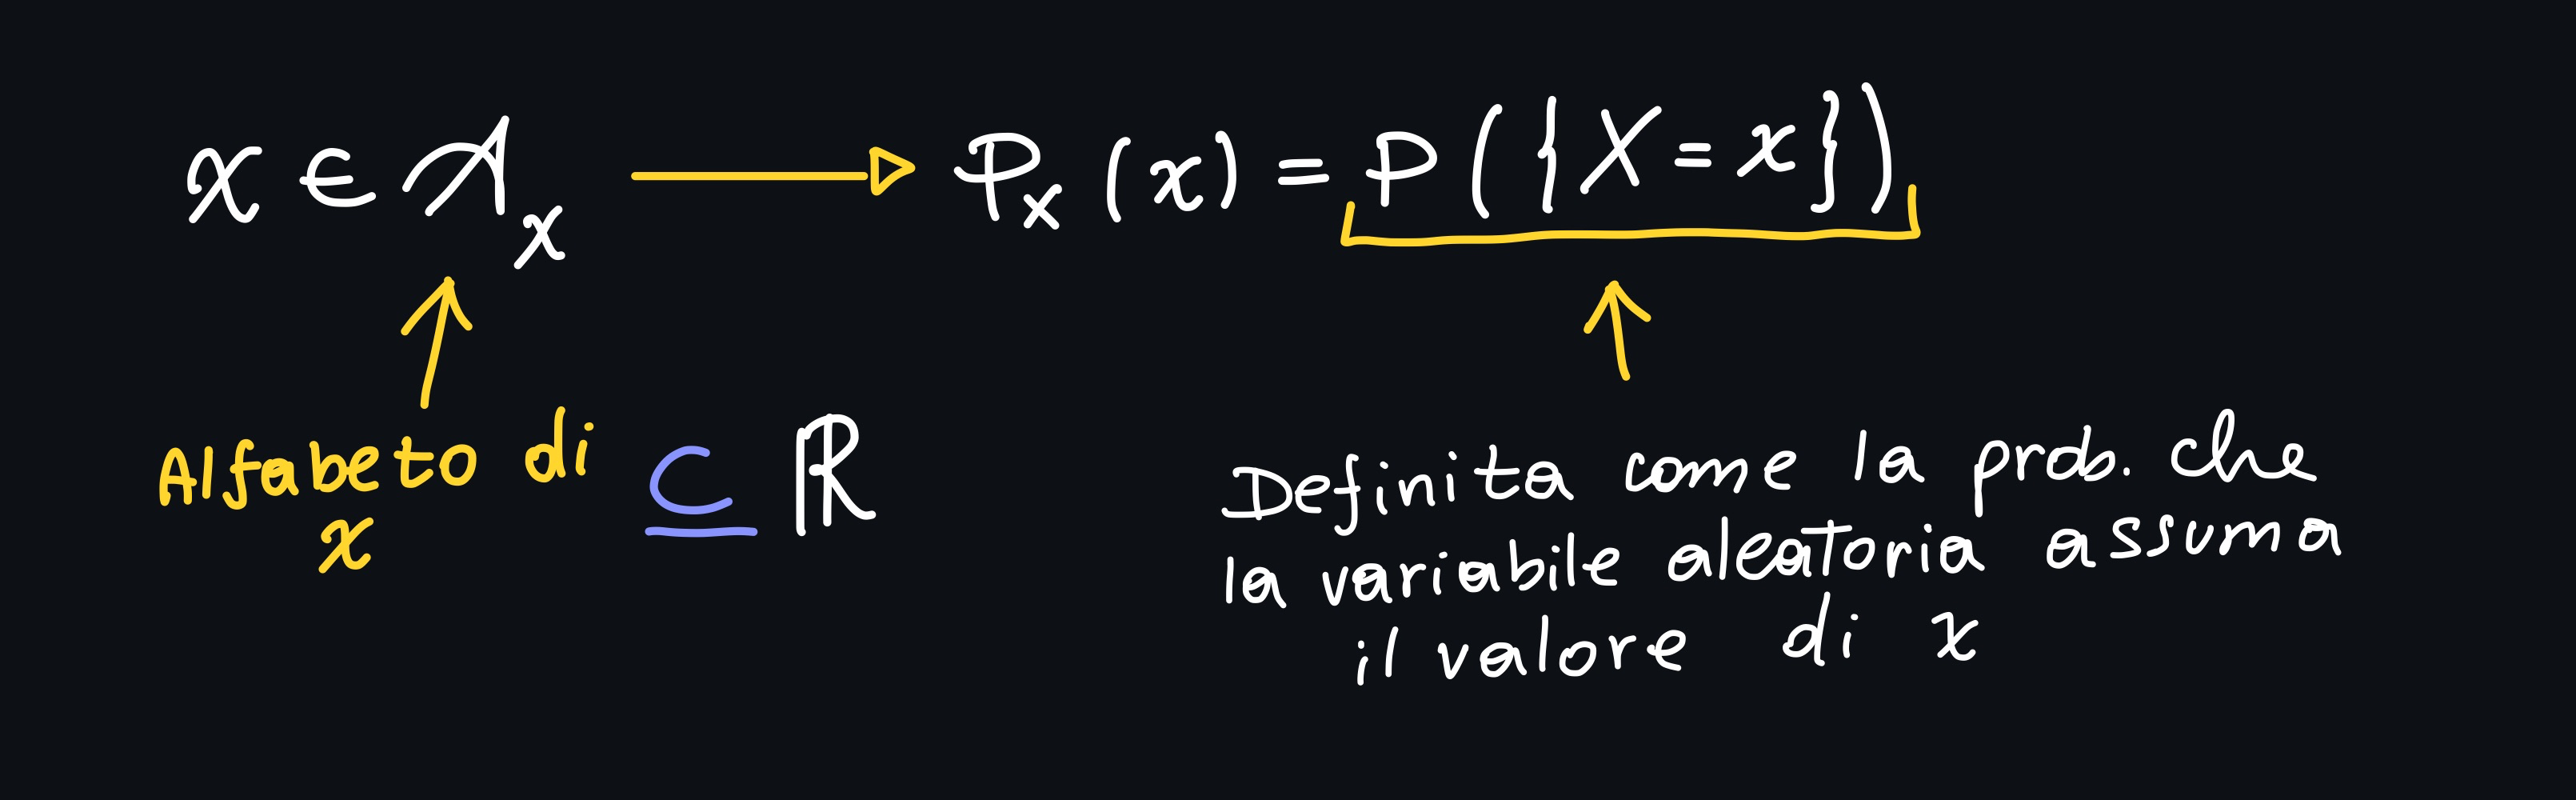 x ∈ 𝒜x → Px (x) = P ({X = x})
Alfabeto di
x
⊆ ℝ
Definita come la prob. che
la variabile aleatoria assuma
il valore di x